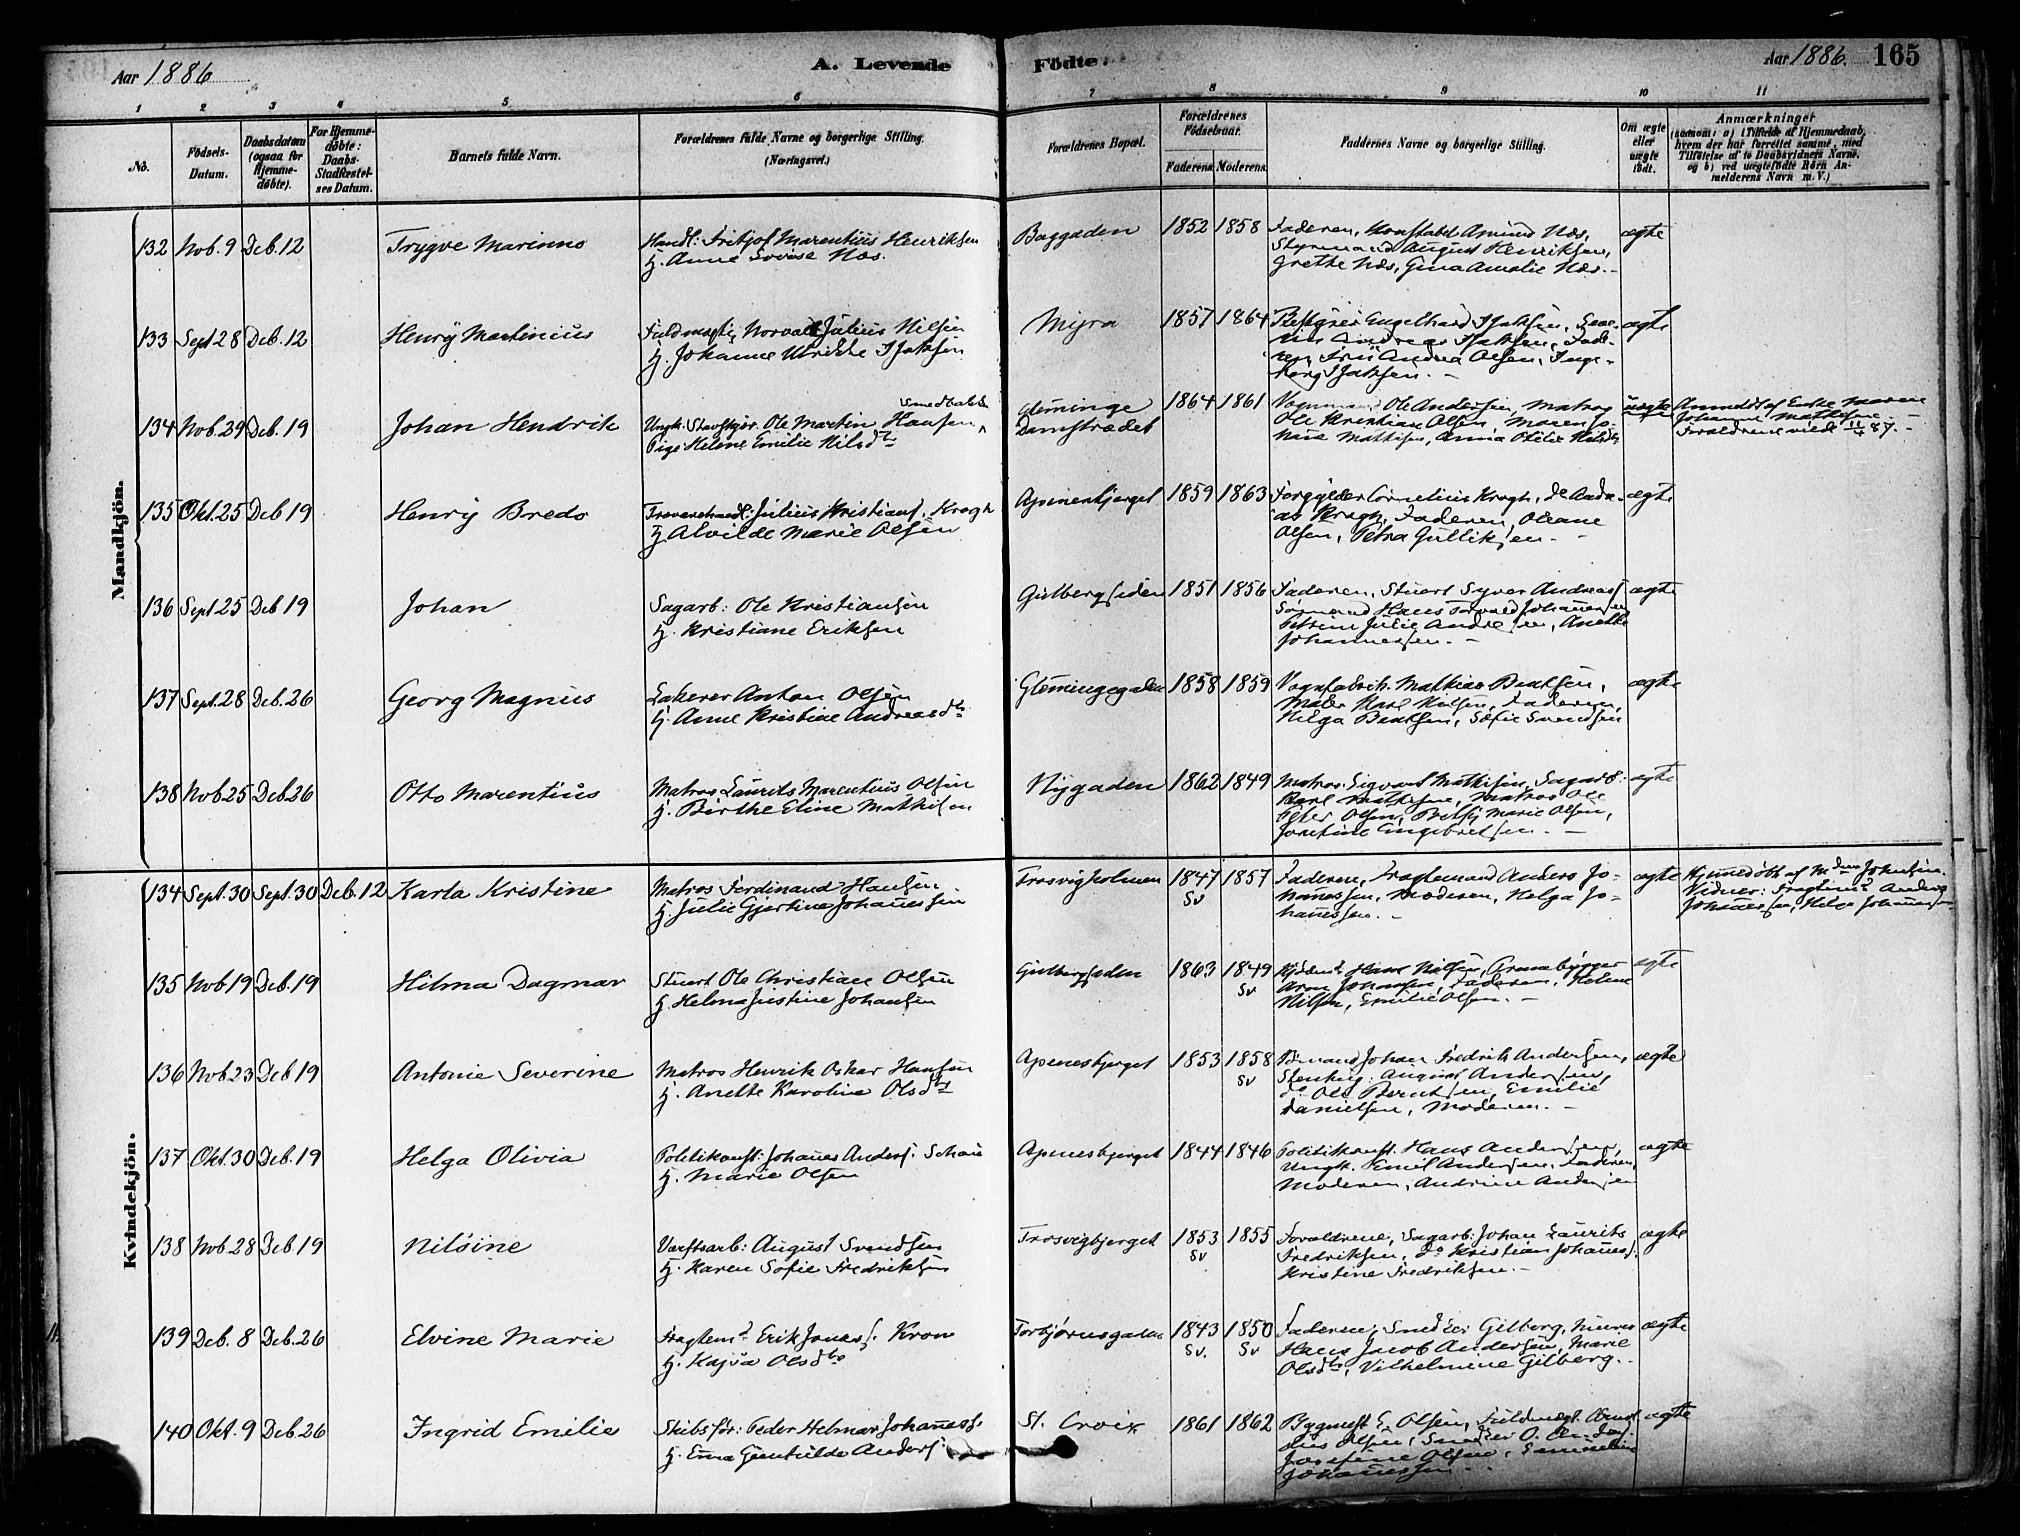 Aar 1886
A. Levende
Födte.
Aar 1886. 165
1 2 3 4 5 6 7 8 9 10 11
No.
Födsels-Datum.
Daabsdatum (ogsaa for Hjemme-döbte).
For Hjemme-döbte: Daabs-Stadfæstel-ses Datum.
Barnets fulde Navn.
Forældrenes fulde Navne og borgerlige Stilling. (Næringsvei.)
Forældrenes Bopæl.
Forældrenes Födselsaar.
Faderens. Moderens.
Faddernes Navne og borgerlige Stilling.
Om ægte eller uægte födt.
Anmærkninger
(saasom: a) i Tilfælde af Hjemmedaab,
hvem der har forrettet samme, med
Tilföielse af to Daabsvidners Navne,
og b) ved uægtefödte Börn An-
melderens Navn m. V.)
Mandkjön.
132 Nob. 9 Deb. 12 Trygve Marinus
Handl: Fritjof Marentius Henriksen
H. Anne Lovise Næs.
Baggaden 1852 1858
Faderen, Konstabel Amund Næs,
Styrmand August Henriksen,
Grethe Næs, Gina Amalie Næs. -
ægte
133 Sept 28 Deb. 12 Henry Martinius
Fuldmægtig Norvald Julius Nilsen
H. Johanne Ulrikke Isaksen
Myra 1857 1864
Bestyrer Engelhard Isaksen,
Andreas Isaksen,
Andrea Olsen, Inge-
borg Isaksen. -
ægte
134 Nob. 29 Deb. 19 Johan Hendrik
Ungk. Ole Martin Hansen
Pige Helene Emilie Nilsdtr
Gleminge
Damstrædet
1864 1861
Ole Andersen, Matros
Ole Kristian Olsen, Maren Jo-
hane Mathisen, Anna Otilie Nilsdtr
uægte
Anmeldt af Enke Maren
Johanne Mathisen. -
Forældrene viede 11/4 87. -
135 Okt. 25 Deb 19 Henry Bredo
Julius Kristians. Krogh
H. Alvilde Marie Olsen
Apenesbjerget 1859 1863
Forgylder Cornelius Krogh, do Andre-
as Krogh, Faderen, Oleane
Olsen, Petra Gulliksen. -
ægte
136 Sept 25 Deb 19 Johan
Sagarb: Ole Kristiansen
H. Kristiane Eriksen
Gulbergsiden 1851 1856
Faderen, Stuert Syver Andreass.
Sømand Hans Torvald Johannesen
Petrine Julie Andresen, Anette
Johannessen. -
ægte
137 Sept. 28 Deb. 26 Georg Magnus
Lakerer Anton Olsen
H. Anne Kristine Andreasdtr
Glemingegaden 1858 1859
Vognfabrik. Mathias Bentsen,
Maler Karl Nilsen, Faderen,
Helga Bentsen, Sofie Svendsen
ægte
138 Nob 25 Deb 26 Otto Marentius
Matros Laurits Marentius Olsen
H. Birthe Eline Mathisen
Nygaden 1862 1849
Matros Sigvart Mathisen, Sagarb:
Karl Mathisen, Matros Ole
Peter Olsen, Betsy Marie Olsen,
Josefine Engebretsen. -
ægte
Kvindekjön.
134 Sept. 30 Sept. 30 Deb. 12 Karla Kristine
Matros Ferdinand Hansen
H. Julie Gjertine Johannessen
Trosvigholmen 1847 Sv 1857
Faderen, Fragtemand Anders Jo-
hannessen, Moderen, Helga Jo-
hannessen. -
ægte
Hjemedöbt af Johansen.
Vidner: Fragtem. Anders
Johannessen, Helga Johannessen
135 Nob 19 Deb. 19 Hilma Dagmar
Stuert Ole Christian Olsen
H. Helma Justine Johansen
Gulbergsiden 1863 1849 Sv
Hans Nilsen,
Aron Johansen, Faderen, Helene
Nilsen, Emilie Olsen. -
ægte
136 Nob. 23 Deb 19 Antonie Severine
Matros Henrik Oskar Hansen
H. Anette Karoline Olsdtr
Apenesbjerget 1853 1858 Sv
Sömand Johan Fredrik Andersen,
Stenhug: August Andersen,
do Ole Berntsen, Emilie
Danielsen, Moderen. -
ægte
137 Okt. 30 Deb. 19 Helga Olivia
Politikonst: Johannes Anders.
H. Marie Olsen
Apenesbjerget 1844 1846
Politikonst. Hans Andersen,
Ungk. Emil Andersen, Faderen,
Moderen, Andrine Andersen
ægte
138 Nob. 28 Deb. 19 Nilsine
Værftsarb: August Svendsen
H. Karen Sofie Fredriksen
Trosvigbjerget 1853 Sv 1855
Forældrene, Sagarb: Johan Laurits
Fredriksen, do Kristian Johannes.
Kristine Fredriksen. -
ægte
139 Deb. 8 Deb. 26 Elvine Marie
Fragtemd Erik Jonass. Kron
H. Kajsa Olsdtr
Torbjørnsgaden 1843 Sv. 1850 Sv
Faderen, Smed Gilberg, Murer
Hans Jacob Andersen, Marie
Olsdtr, Vilhelmine Gilberg. -
ægte
140 Okt. 9 Deb. 26 Ingrid Emilie
Skibsför: Peder Helmar Johanness.
H. Ema Gunhilde Anders.
St. Croix 1861 1862
Bygmest. E. Olsen, Fuldmægt.
Olsen,
Josefine Olsen,
Johannessen. -
ægte